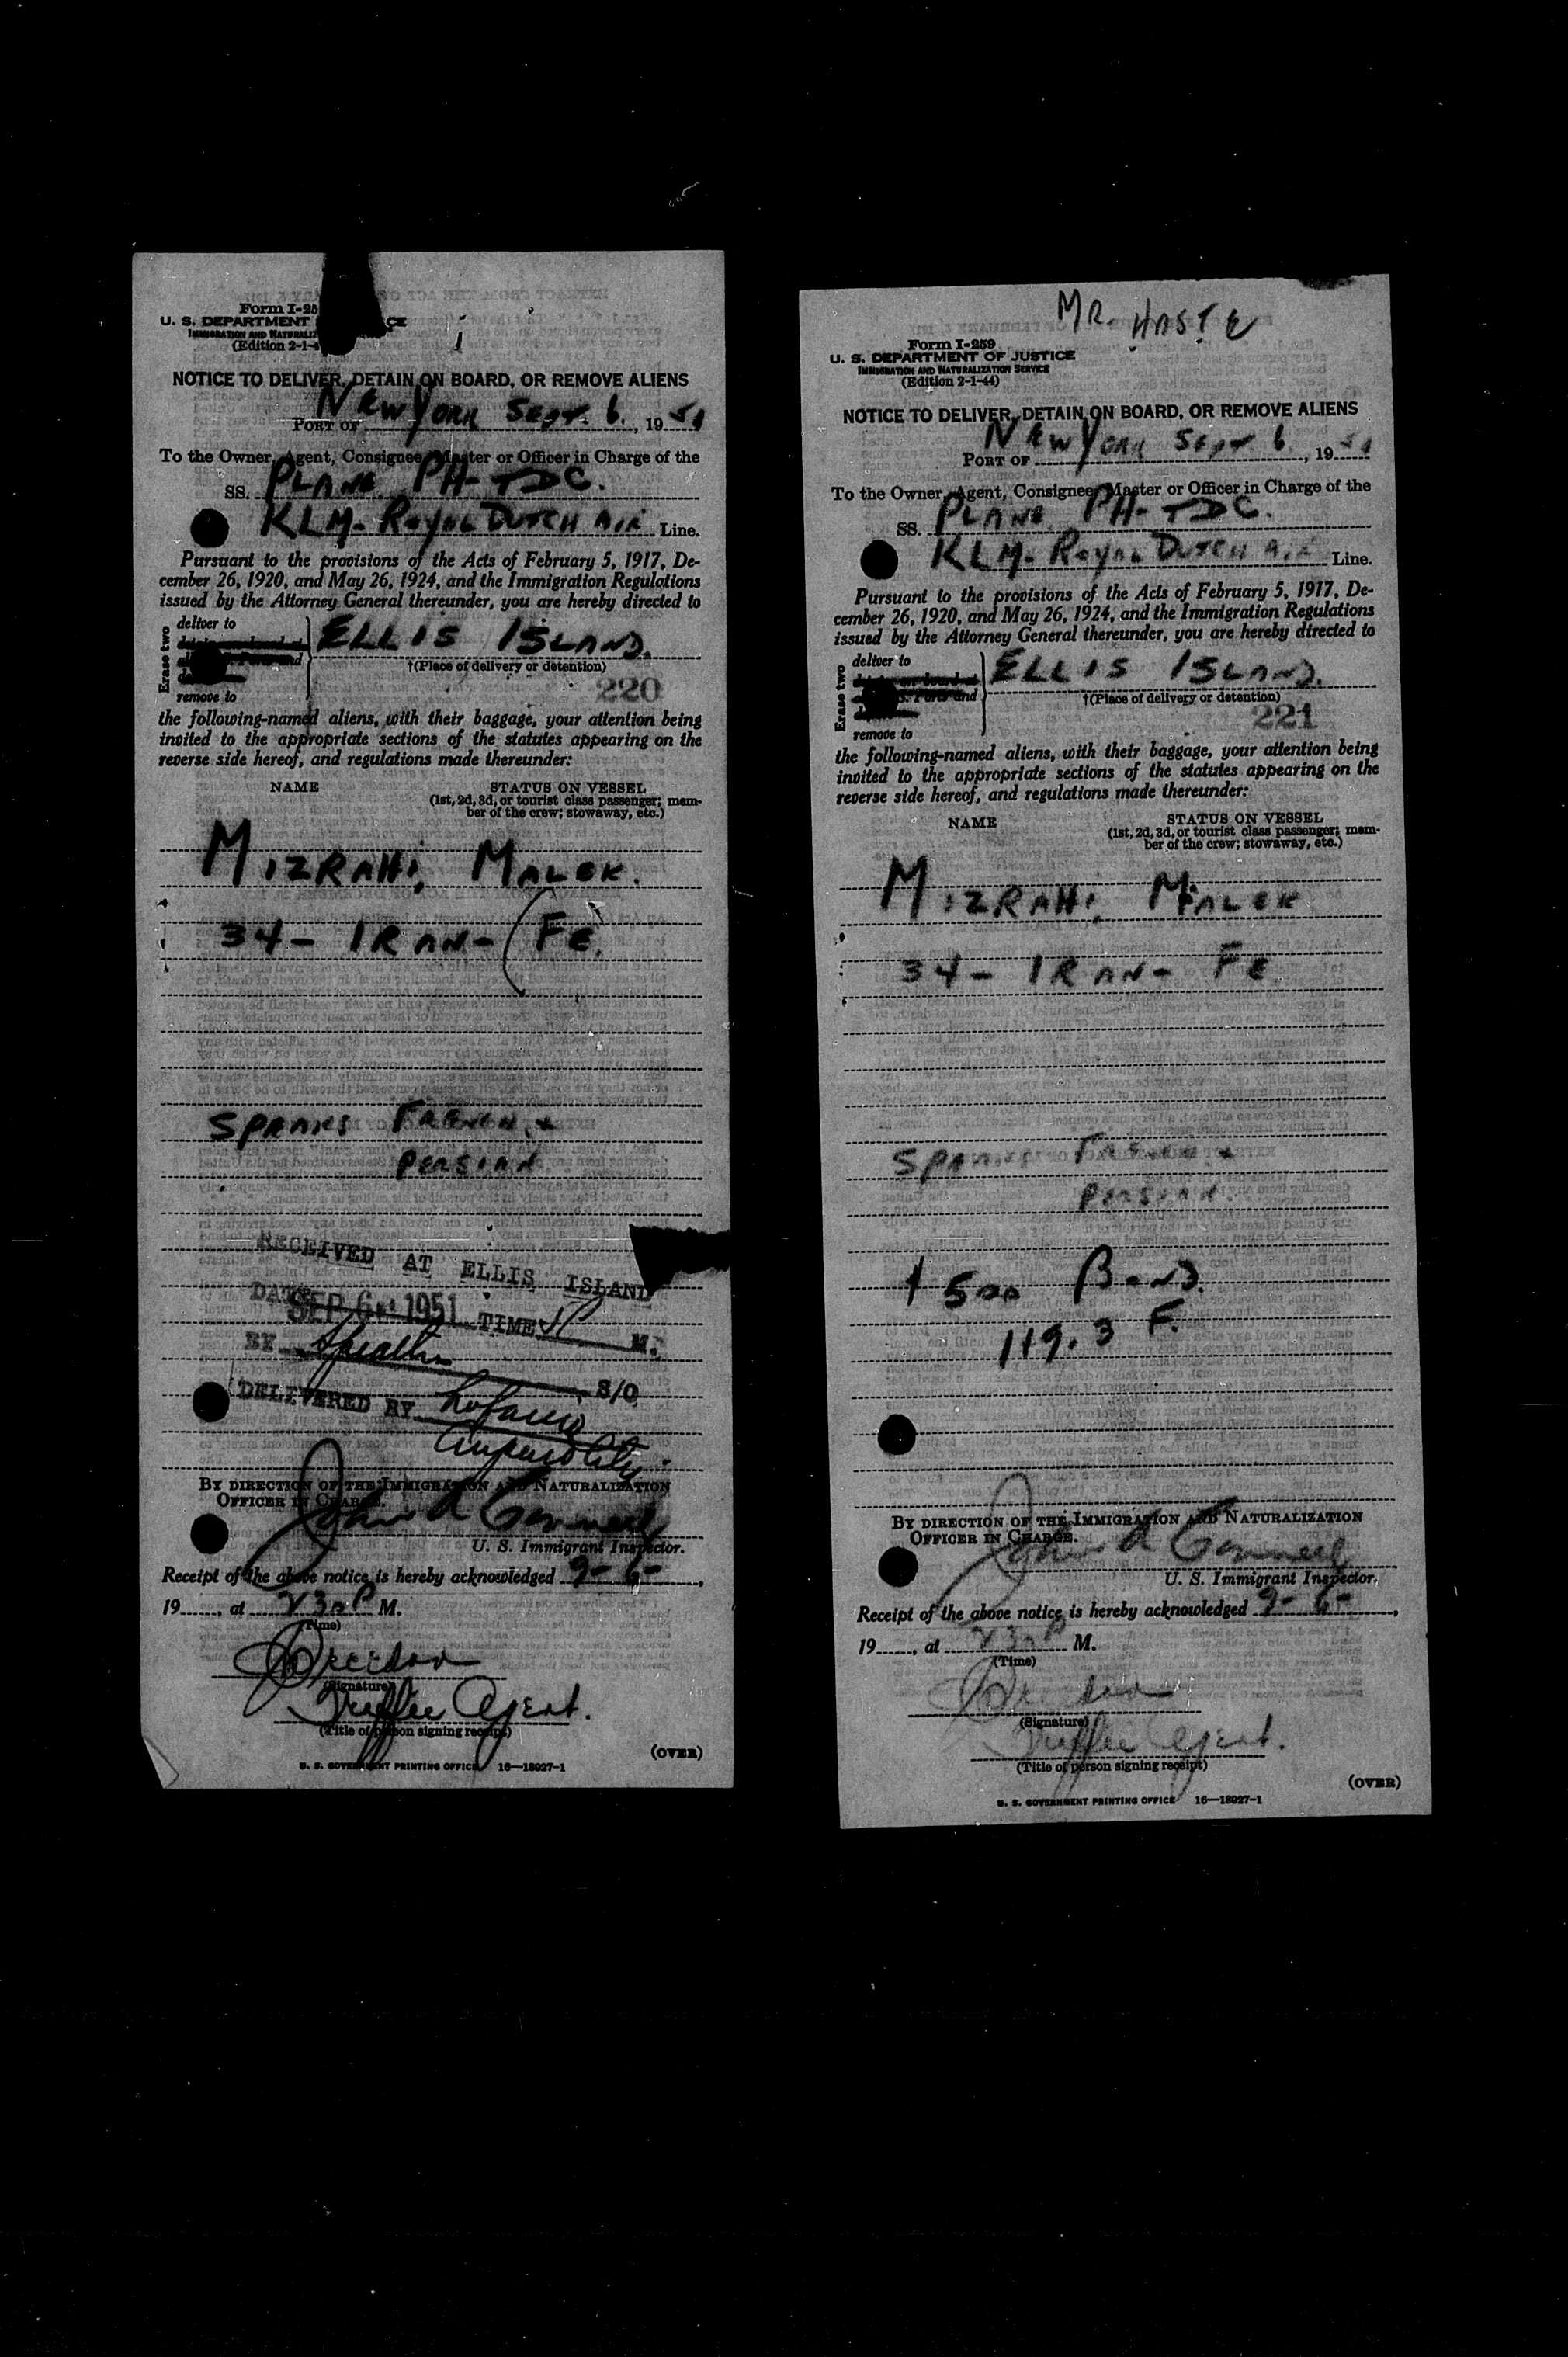 Form I-25
U. S. DEPARTMENT CE
IMMIGRATION AND NATURALIZ
(Edition 2-1-4
NOTICE TO DELIVER, DETAIN ON BOARD, OR REMOVE ALIENS
PORT OF New York Sept. 6, 1951
To the Owner, Agent, Consignee, Master or Officer in Charge of the
SS. PLANE PH-TDC.
KLM-ROYAL DUTCH AIR Line.
Pursuant to the provisions of the Acts of February 5, 1917, De-
cember 26, 1920, and May 26, 1924, and the Immigration Regulations
issued by the Attorney General thereunder, you are hereby directed to
Erase two
deliver to
ELLIS ISLAND.
†(Place of delivery or detention)
remove to
220
the following-named aliens, with their baggage, your attention being
invited to the appropriate sections of the statutes appearing on the
reverse side hereof, and regulations made thereunder:
NAME STATUS ON VESSEL
(1st, 2d, 3d, or tourist class passenger; mem-
ber of the crew; stowaway, etc.)
MIZRAHI, MALEK.
34 - IRAN - (FE.
SPEAKS FRENCH &
PERSIAN
RECEIVED AT ELLIS ISLAND
DATE SEP 6 1951 TIME M.
BY S/O
DELIVERED BY
BY DIRECTION OF THE IMMIGRATION AND NATURALIZATION
OFFICER IN CHARGE.
U. S. Immigrant Inspector.
Receipt of the above notice is hereby acknowledged 9-6-,
19, at 230 P M.
(Time)
(Signature)
Traffic Agent.
(Title of person signing receipt)
(OVER)
U. S. GOVERNMENT PRINTING OFFICE 16—18027-1
MR. HASTE
Form I-259
U. S. DEPARTMENT OF JUSTICE
IMMIGRATION AND NATURALIZATION SERVICE
(Edition 2-1-44)
NOTICE TO DELIVER, DETAIN ON BOARD, OR REMOVE ALIENS
PORT OF New York Sept 6, 1951
To the Owner, Agent, Consignee, Master or Officer in Charge of the
SS. PLANE PH-TDC.
KLM-ROYAL DUTCH AIR Line.
Pursuant to the provisions of the Acts of February 5, 1917, De-
cember 26, 1920, and May 26, 1924, and the Immigration Regulations
issued by the Attorney General thereunder, you are hereby directed to
Erase two
deliver to
ELLIS ISLAND.
†(Place of delivery or detention)
remove to
221
the following-named aliens, with their baggage, your attention being
invited to the appropriate sections of the statutes appearing on the
reverse side hereof, and regulations made thereunder:
NAME STATUS ON VESSEL
(1st, 2d, 3d, or tourist class passenger; mem-
ber of the crew; stowaway, etc.)
MIZRAHI, MALEK
34 - IRAN - FE
SPEAKS FRENCH &
PERSIAN
500 BOND.
119.3 F.
BY DIRECTION OF THE IMMIGRATION AND NATURALIZATION
OFFICER IN CHARGE.
U. S. Immigrant Inspector.
Receipt of the above notice is hereby acknowledged 9-6-,
19, at 230 P M.
(Time)
(Signature)
Traffic Agent.
(Title of person signing receipt)
(OVER)
U. S. GOVERNMENT PRINTING OFFICE 16—18027-1